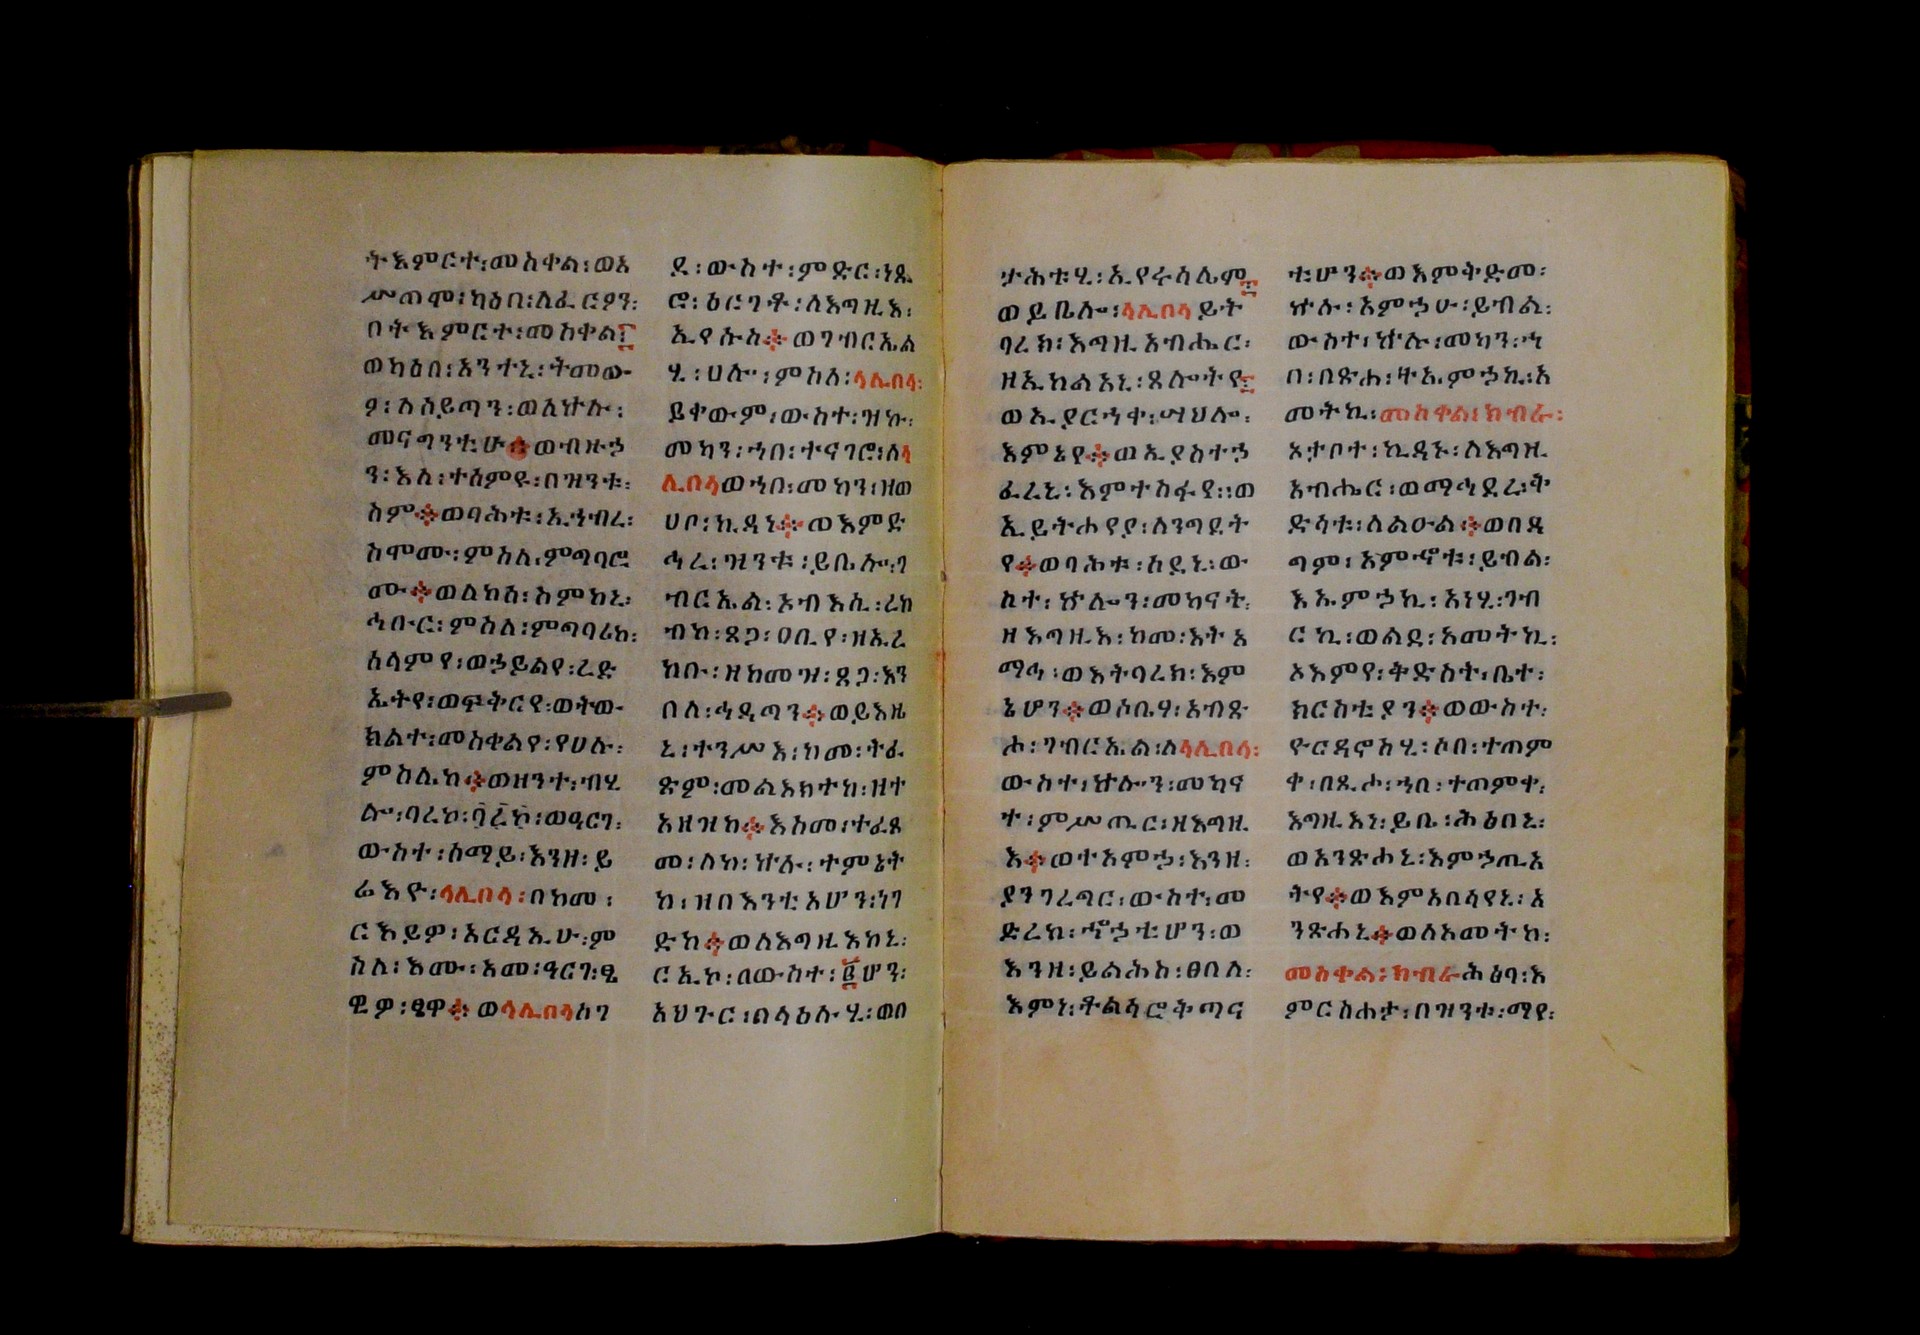 ትእምርተ፡መስቀል፡ወአ
ሥጠሞ፡ካዕበ፡ለፈርዖን፡
በትእምርተ፡መስቀል፤
ወካዕበ፡አንተኒ፡ትመው
ዖ፡ለሰይጣን፡ወለኵሉ፡
መናግንቲሁ፨ወብዙኃ
ን፡እለ፡ተሰምዩ፡በዝንቱ፡
ስም፨ወባሕቱ፡ኢኀብረ፡
ስሞሙ፡ምስለ፡ምግባሮ
ሙ፨ወለከሰ፡ስምከኒ፡
ኅቡር፡ምስለ፡ምግባሪከ፡
ሰላምየ፡ወኃይልየ፡ረድ
ኤትየ፡ወፍቅርየ፡ወትው
ክልተ፡መስቀልየ፡የሀሉ፡
ምስሌከ፨ወዘንተ፡ብሂ
ሎ፡ባረኮ፡ባረኮ፡ወዓርገ፡
ውስተ፡ሰማይ፡እንዘ፡ይ
ሬእዮ፡ላሊበላ፡በከመ፡
ርእይዎ፡አርዳኢሁ፡ም
ስለ፡እሙ፡አመ፡ዓርገ፡ፄ
ዊዎ፡ፄዋ፨ወላሊበላሰገ
ደ፡ውስተ፡ምድር፡ነጺ
ሮ፡ዕርገቶ፡ለእግዚእ፡
ኢየሱስ፨ወገብርኤል
ሂ፡ሀሎ፡ምስለ፡ላሊበላ፡
ይቀውም፡ውስተ፡ዝኩ፡
መካን፡ኀበ፡ተናገሮ፡ለላ
ሊበላወኀበ፡መካን፡ዘወ
ሀቦ፡ኪዳነ፨ወእምድ
ኅረ፡ዝንቱ፡ይቤሎ፡ገ
ብርኤል፡ኦብእሲ፡ረከ
ብከ፡ጸጋ፡ዐቢየ፡ዘኢረ
ከቡ፡ዘከመዝ፡ጸጋ፡እን
በለ፡ኅዳጣን፨ወይእዜ
ኒ፡ተንሥእ፡ከመ፡ትፈ
ጽም፡መልእክተከ፡ዘተ
አዘዝከ፨እስመ፡ተፈጸ
መ፡ለከ፡ኵሉ፡ተምኔት
ከ፡ዝበእንቲአሆን፡ነገ
ድከ፨ወለእግዚእከኒ፡
ርኢኮ፡በውስተ፡፪ሆን፡
አህጉር፡በላዕሉሂ፡ወበ
ታሕቱሂ፡ኢየሩሳሌም፤
ወይቤሎ፡ላሊበላይት
ባረክ፡እግዚአብሔር፡
ዘኢከልአኒ፡ጸሎትየ፤
ወኢያርኀቀ፡ሣህሎ፡
እምኔየ፨ወኢያስተኃ
ፈረኒ፡እምተስፋየ፡፡ወ
ኢይትሐየያ፡ለንግደት
የ፨ወባሕቱ፡ስደኒ፡ው
ስተ፡ኵሎን፡መካናት፡
ዘእግዚእ፡ከመ፡እትአ
ማኅ፡ወእትባረክ፡እም
ኔሆን፨ወሶቤሃ፡አብጽ
ሖ፡ገብርኤል፡ለላሊበላ፡
ውስተ፡ኵሎን፡መካና
ተ፡ምሥጢር፡ዘእግዚ
እ፨ወተአምኃ፡እንዘ፡
ያንገረጕር፡ውስተ፡መ
ድረከ፡ኆኃቲሆን፡ወ
እንዘ፡ይልሕስ፡ፀበለ፡
እምነ፡ትልላሮቅጣና
ቲሆን፨ወእምቅድመ፡
ኵሉ፡አምኃሁ፡ይብል፡
ውስተ፡ኵሉ፡መካን፡ኀ
በ፡በጽሐ፡ቸኢምኃኪ፡አ
መትኪ፡መስቀል፡ክብራ፡
ኦታቦተ፡ኪዳኑ፡ለእግዚ
አብሔር፡ወማኅደረ፡ቅ
ድሳቱ፡ለልዑል፨ወበዳ
ግም፡አምኆቱ፡ይብል፡
እኤምኃኪ፡አነሂ፡ገብ
ርኪ፡ወልደ፡አመትኪ፡
ኦእምየ፡ቅድስት፡ቤተ፡
ክርስቲያን፨ወውስተ፡
ዮርዳኖስሂ፡ሶበ፡ተጠም
ቀ፡በጺሖ፡ኀበ፡ተጠምቀ፡
እግዚእነ፡ይቤ፡ሕፅበኒ፡
ወአንጽሐኒ፡እምኃጢአ
ትየ፨ወእምአበሳየኒ፡አ
ንጽሐኒ፨ወለአመትከ፡
መስቀል፡ክብራሕፅባ፡እ
ምርስሐታ፡በዝንቱ፡ማየ፡